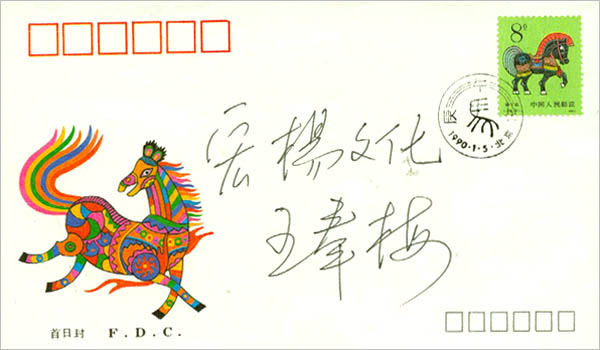 8分
中国人民邮政
庚午
1990·1·5·北京
宏楊文化
王奉梅
首日封 F.D.C.